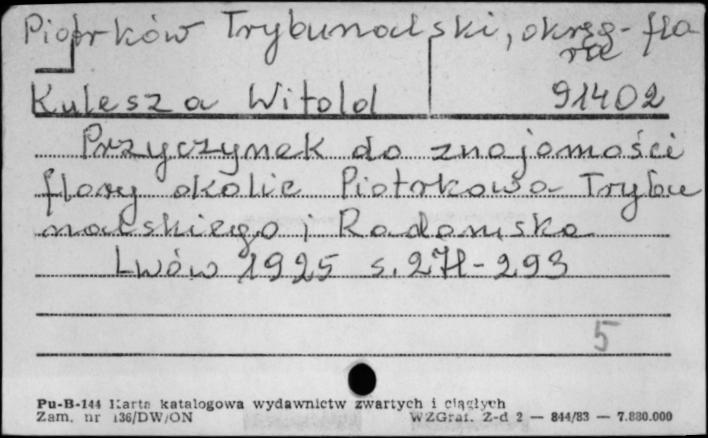 Piotrków Trybunalski, okręg - flo
ra
Kulesza Witold 91402
Przyczynek do znajomości
flory okolic Piotrkowa Trybu
nalskiego i Radomska
Lwów 1925 s. 271-293
5
Pu-B-144 Karta katalogowa wydawnictw zwartych i ciągłych
Zam. nr 136/DW/ON WZGraf. Z-d 2 — 844/83 — 7.880.000